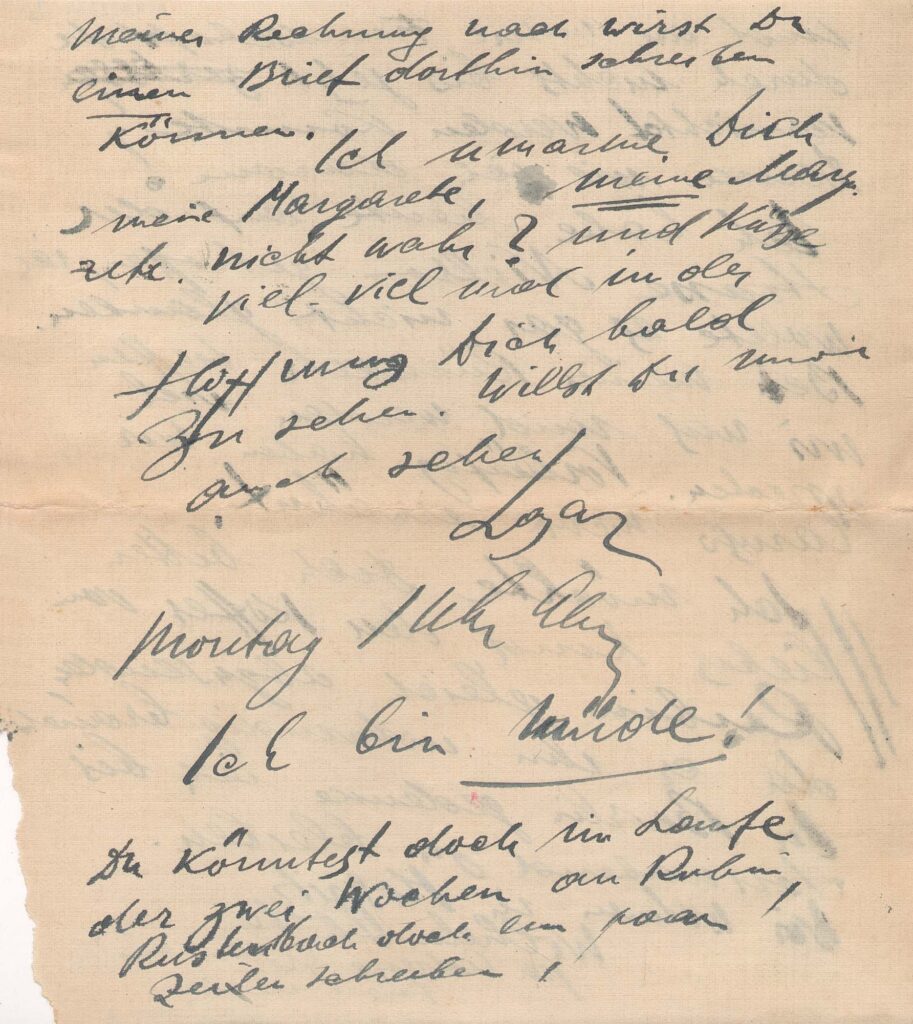 meiner Rechnung nach wirst Du
einen Brief dorthin schreiben
können.
Ich umarme Dich
meine Margarete, meine Marg.
zetz. nicht wahr? und Küsse
viel-viel mal in der
Hoffnung Dich bald
zu sehen. Willst Du mich
auch sehen
Lazar
Montag 1 Uhr
Ich bin müde!
Du könntest doch im Laufe
der zwei Wochen an Rubin,
doch ein paar
Zeilen schreiben,